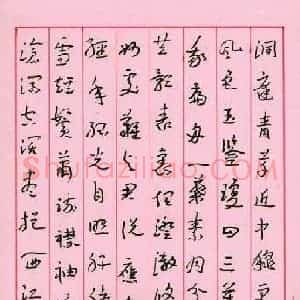 洞庭青草近中秋更
風色玉鑒瓊田三萬
我扁舟一葉素月分
表裏俱澄澈
妙處難與君說應
經年孤光自照肝
雪短鬢蕭疏襟袖
滄溟空闊盡挹西江
Shufaziliao.COM